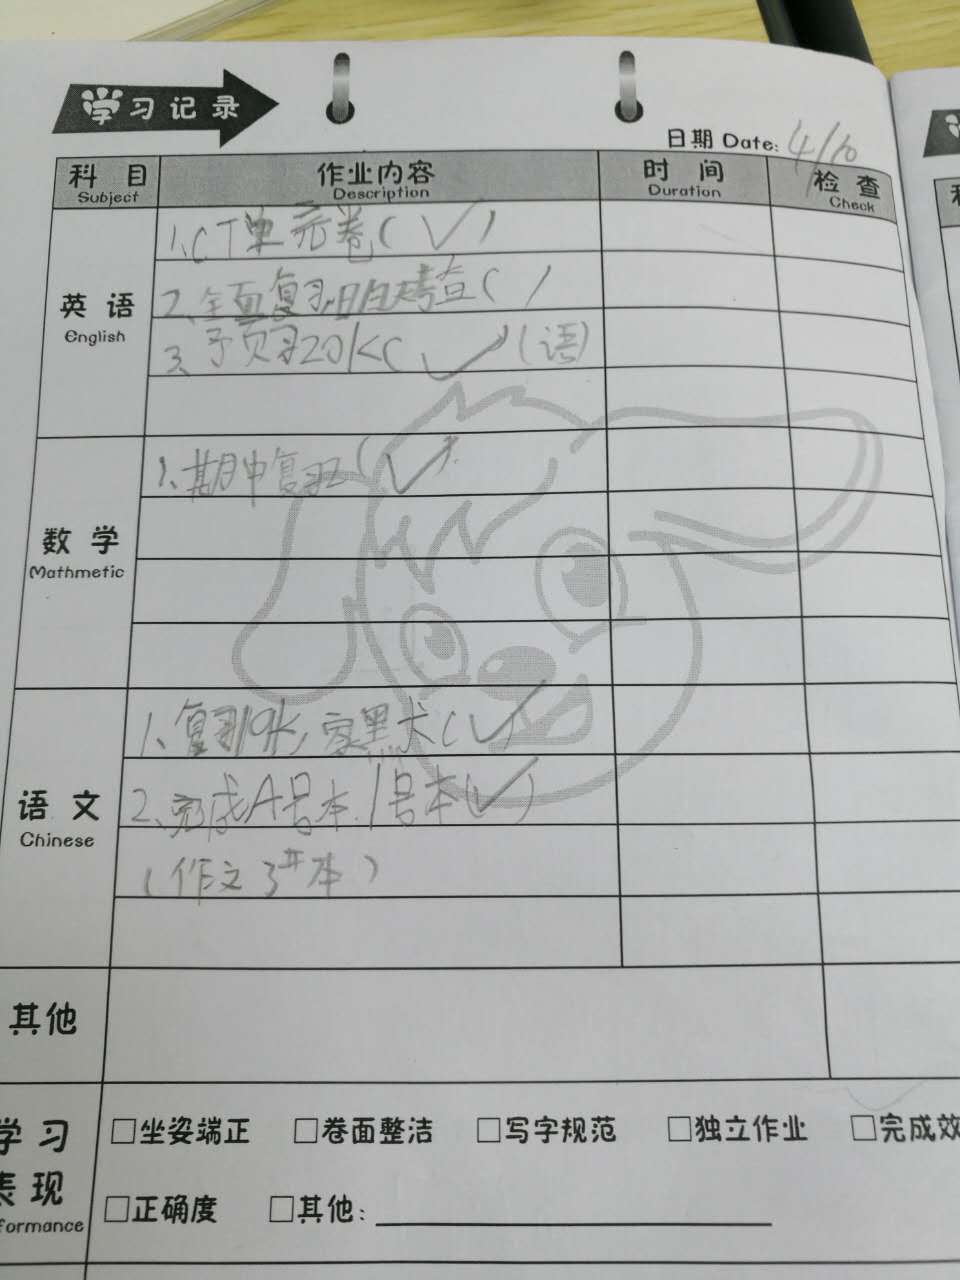 学习记录
日期 Date: 4/16
科目 作业内容 时间 检查
Subject Description Duration Check
英语
English
1、CT单元卷(✓)
2、全面复习,明天考查( )
3、予页习20K(✓)(语)
数学
Mathmetic
1、期中复习(✓)
语文
Chinese
1、复习19K,家黑大(✓)
2、完成A号本.1号本(✓)
(作文3#本)
其他
学习
表现
formance
□坐姿端正 □卷面整洁 □写字规范 □独立作业 □完成效
□正确度 □其他: